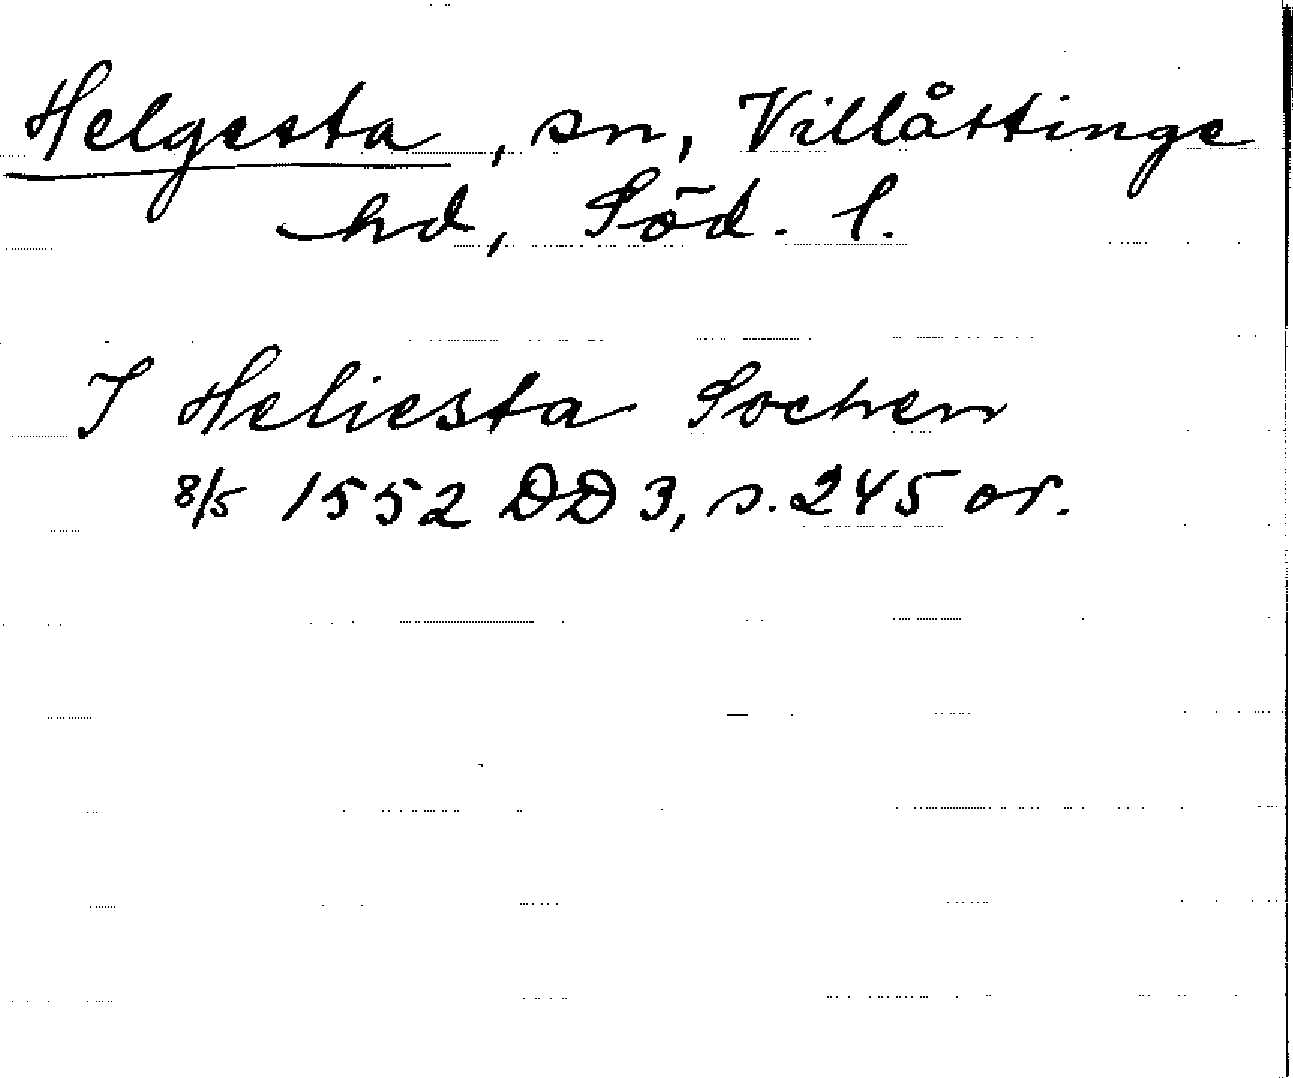 Helgesta, sn, Villåttinge
hd, Söd. l.
I Heliesta Sochen
8/5 1552 DD 3, s. 245 or.